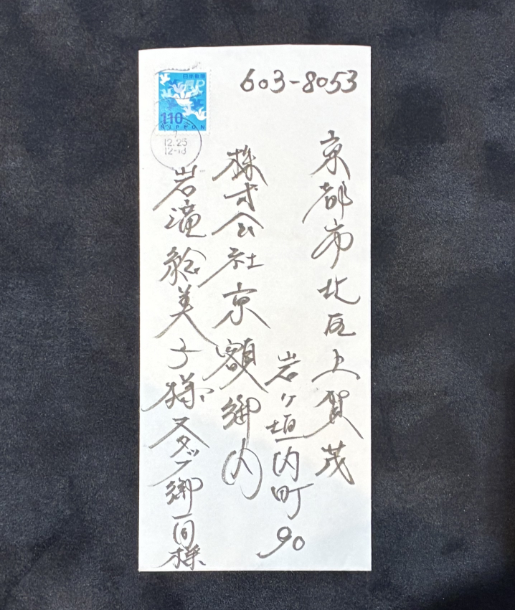 603-8053
京都市北区上賀茂
岩ヶ垣内町90
株式会社京額御内
岩滝鈴美子様スタッフ御一同様
日本郵便
110
NIPPON
12.25